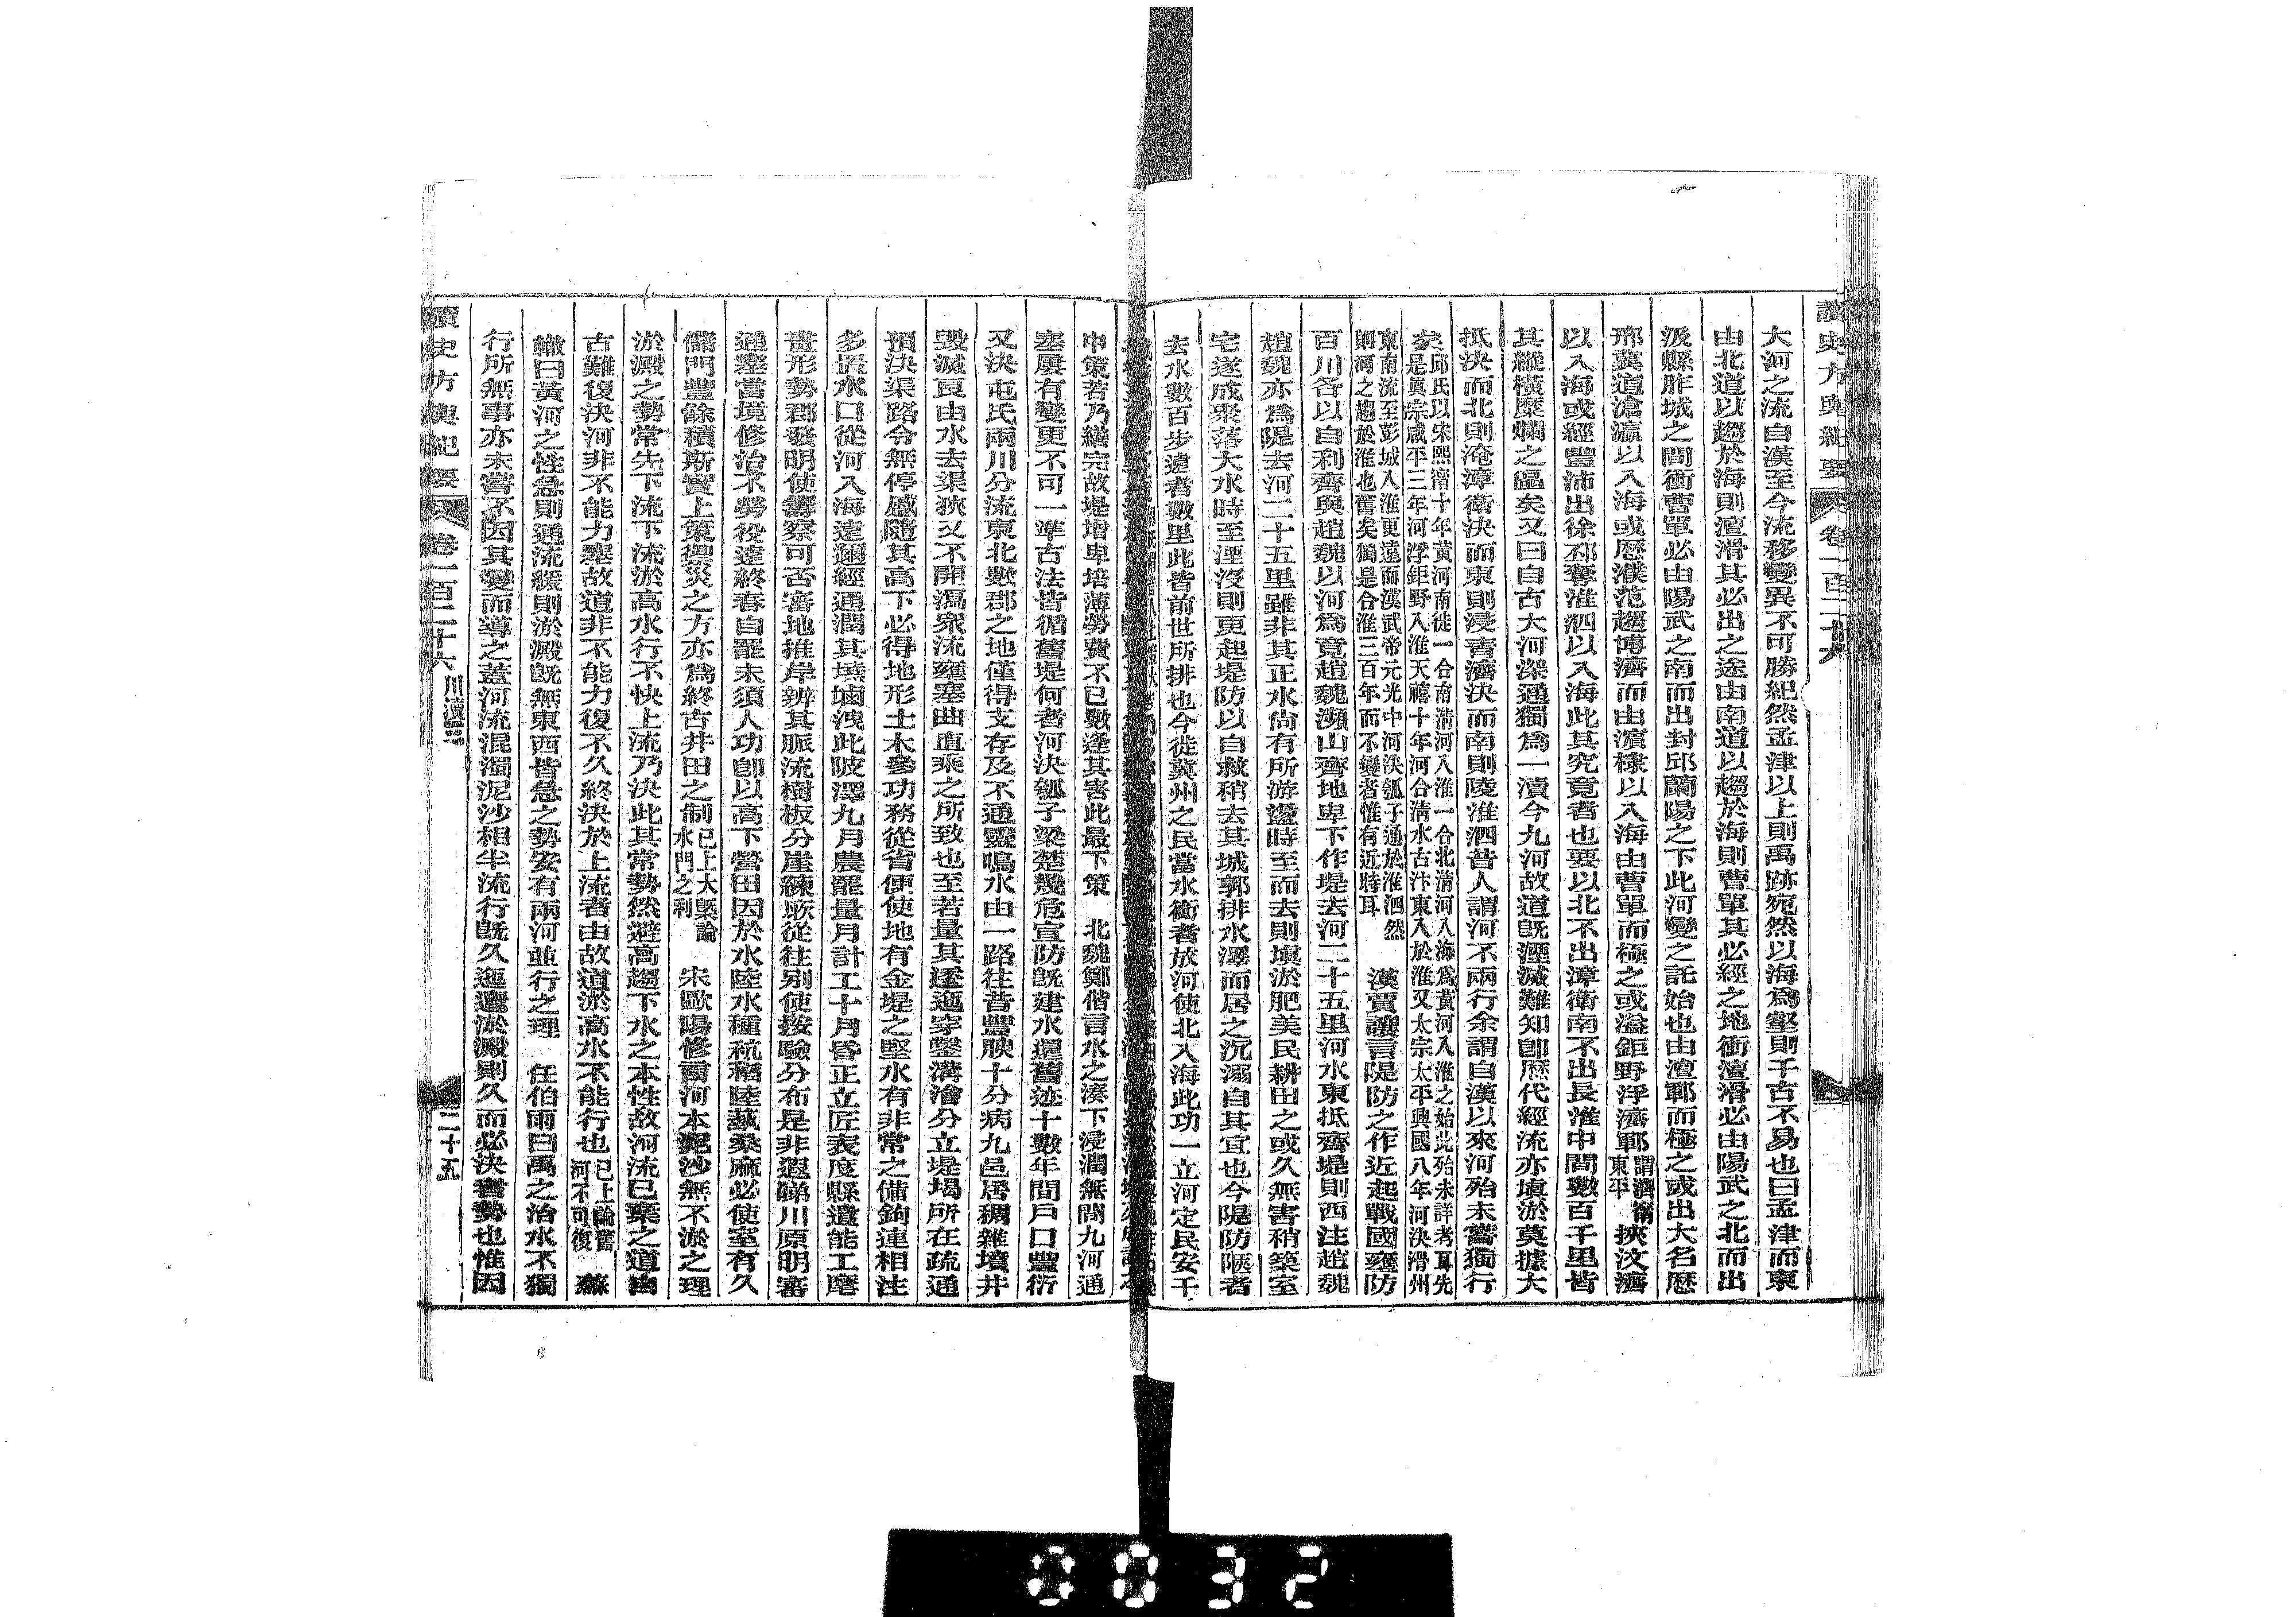 讀史方輿紀要 卷一百二十六
大河之流自漢至今流移變異不可勝紀然孟津以上則禹跡宛然以海爲壑則千古不易也曰孟津而東
由北道以趨於海則澶滑其必出之途由南道以趨於海則曹單其必經之地衝澶滑必由陽武之北而出
汲縣胙城之閒衝曹單必由陽武之南而出封邱蘭陽之下此河變之託始也由澶鄆而極之或出大名歷
邢冀道滄瀛以入海或歷濮范趨博濟而由濱棣以入海由曹單而極之或溢鉅野浮濟鄆謂濟南東平挾汶濟
以入海或經豐沛出徐邳奪淮泗以入海此其究竟者也要以北不出漳衛南不出長淮中閒數百千里皆
其縱橫糜爛之區矣又曰自古大河深通獨爲一瀆今九河故道旣湮滅難知卽歷代經流亦塡淤莫據大
抵決而北則淹漳衛決而東則浸青濟決而南則陵淮泗昔人謂河不兩行余謂自漢以來河殆未嘗獨行
矣邱氏以宋熙甯十年黃河南徙一合南清河入淮一合北清河入海爲黃河入淮之始此殆未詳考耳先
是眞宗咸平三年河浮鉅野入淮天禧十年河合清水古汴東入於淮又太宗太平興國八年河決滑州
東南流至彭城入淮更遠而漢武帝元光中河決瓠子通於淮泗然
則河之趨於淮也舊矣獨是合淮三百年而不變者惟有近時耳 漢賈讓言隄防之作近起戰國壅防
百川各以自利齊與趙魏以河爲竟趙魏瀕山齊地卑下作堤去河二十五里河水東抵齊堤則西泛趙魏
趙魏亦爲隄去河二十五里雖非其正水尙有所游盪時至而去則塡淤肥美民耕田之或久無害稍築室
宅遂成聚落大水時至湮沒則更起堤防以自救稍去其城郭排水澤而居之沉溺自其宜也今隄防陿者
去水數百步遠者數里此皆前世所排也今徙冀州之民當水衝者放河使北入海此功一立河定民安千
中策若乃繕完故堤增卑培薄勞費不已數逢其害此最下策 北魏鄭偕言水之湊下浸潤無閒九河通
塞屢有變更不可一準古法皆循舊堤何者河決瓠子梁楚幾危宣防旣建水還舊迹十數年閒戶口豐衍
又決屯氏兩川分流東北數郡之地僅得支存及不通靈鳴水由一路往昔豐腴十分病九邑居稠雜墳井
毀滅良由水去渠狹又不開瀉衆流壅塞曲直乘之所致也至若量其逶迤穿鑿溝澮分立堤堨所在疏通
預決渠路令無停蹙隨其高下必得地形土木參功務從省便使地有金堤之堅水有非常之備鉤連相注
多置水口從河入海遠邇經通潤其墝塉洩此陂澤九月農罷量月計工十月昏正立匠表度縣遣能工麾
畫形勢郡發明使籌察可否審地推岸辨其脈流樹板分崖練厥從往別使按驗分布是非遐睇川原明審
通塞當境修治不勞役遠終春自罷未須人功卽以高下營田因於水陸水種秔稻陸蓺桑麻必使室有久
儲門豐餘積斯實上策禦災之方亦爲終古井田之制已上大槩論水門之利 宋歐陽修言河本泥沙無不淤之理
淤澱之勢常先下流下流淤高水行不快上流乃決此其常勢然避高趨下水之本性故河流已棄之道自
古難復決河非不能力塞故道非不能力復不久終決於上流者由故道淤高水不能行也已上論舊河不可復 蘇
轍曰黃河之性急則通流緩則淤澱旣無東西皆急之勢安有兩河並行之理 任伯雨曰禹之治水不獨
行所無事亦未嘗不因其變而導之蓋河流混濁泥沙相半流行旣久迤邐淤澱則久而必決者勢也惟因
讀史方輿紀要 卷一百二十六 川瀆三 二十五
0032